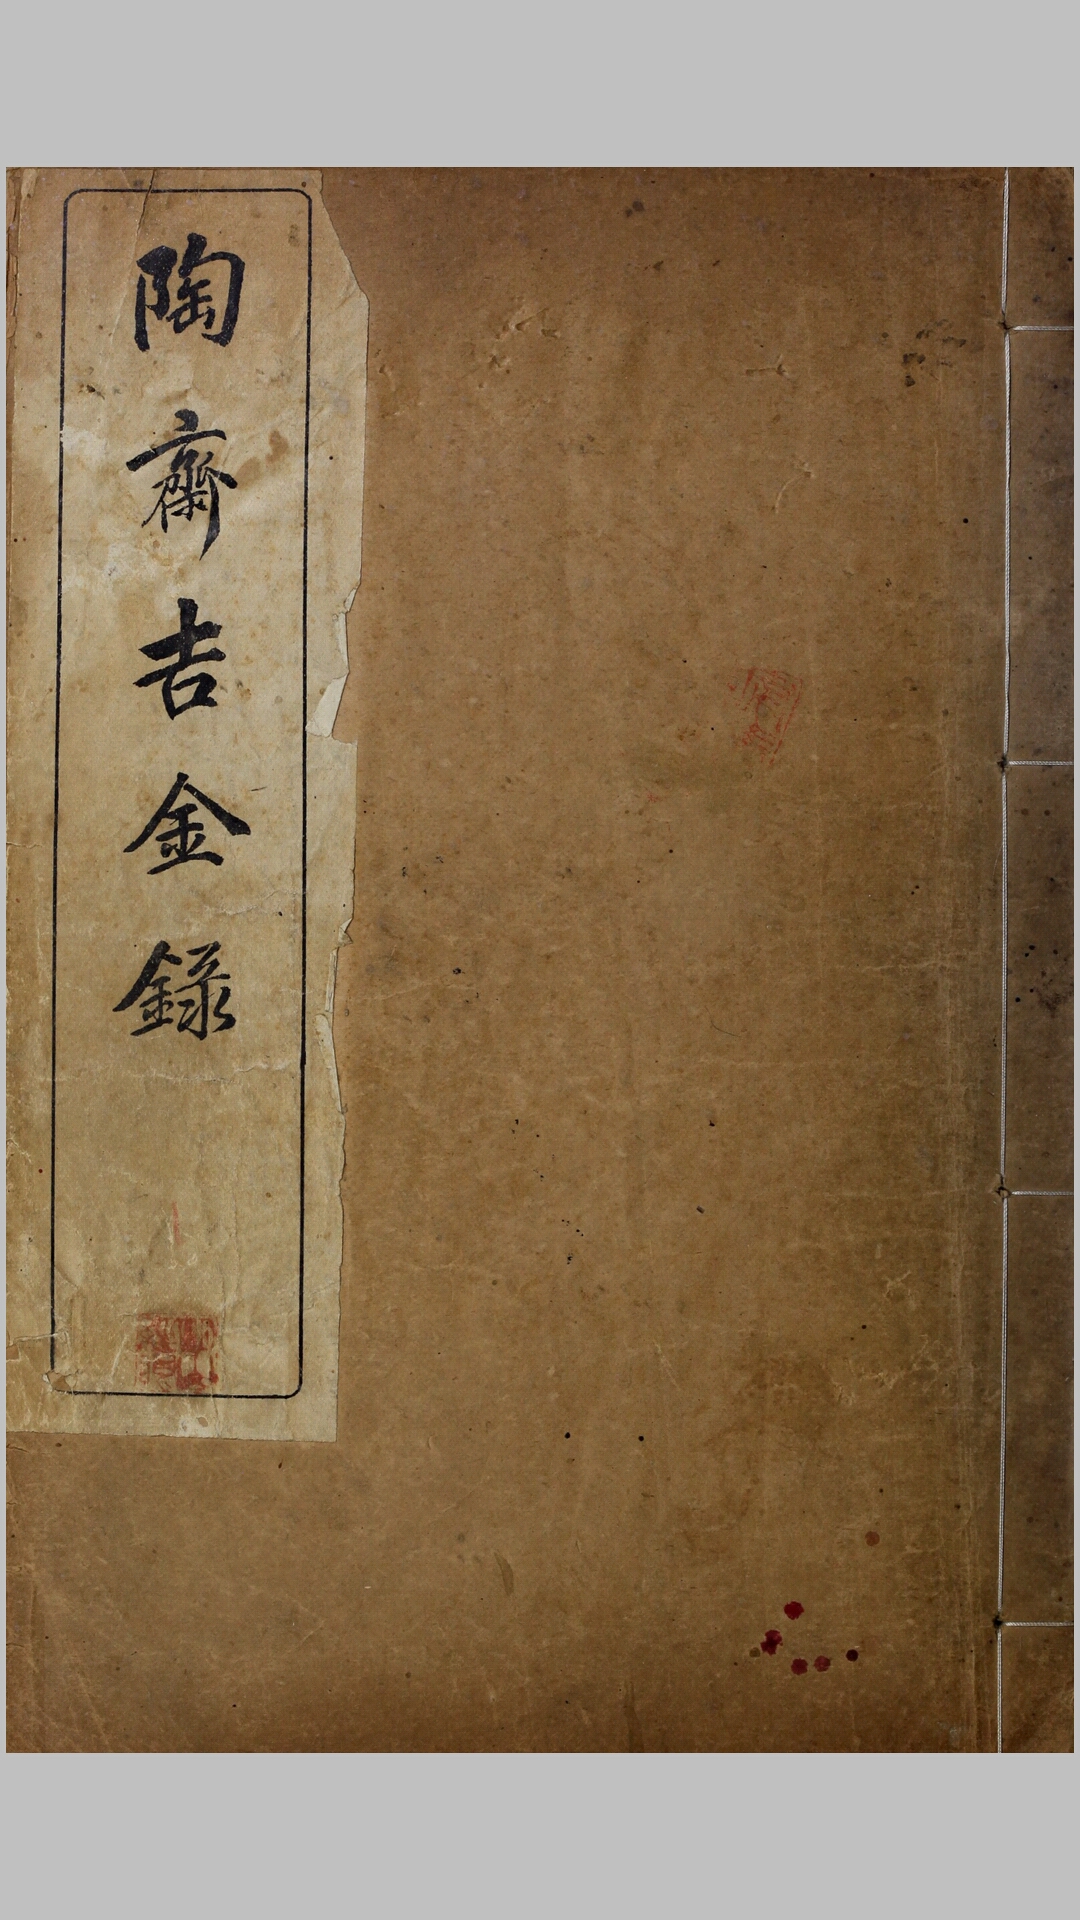 陶齋吉金錄